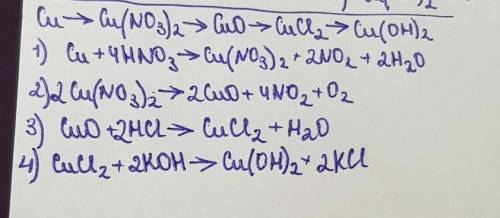 Cu → Cu(NO₃)₂ → CuO → CuCl₂ → Cu(OH)₂
1) Cu + 4HNO₃ → Cu(NO₃)₂ + 2NO₂ + 2H₂O
2) 2Cu(NO₃)₂ → 2CuO + 4NO₂ + O₂
3) CuO + 2HCl → CuCl₂ + H₂O
4) CuCl₂ + 2KOH → Cu(OH)₂ + 2KCl